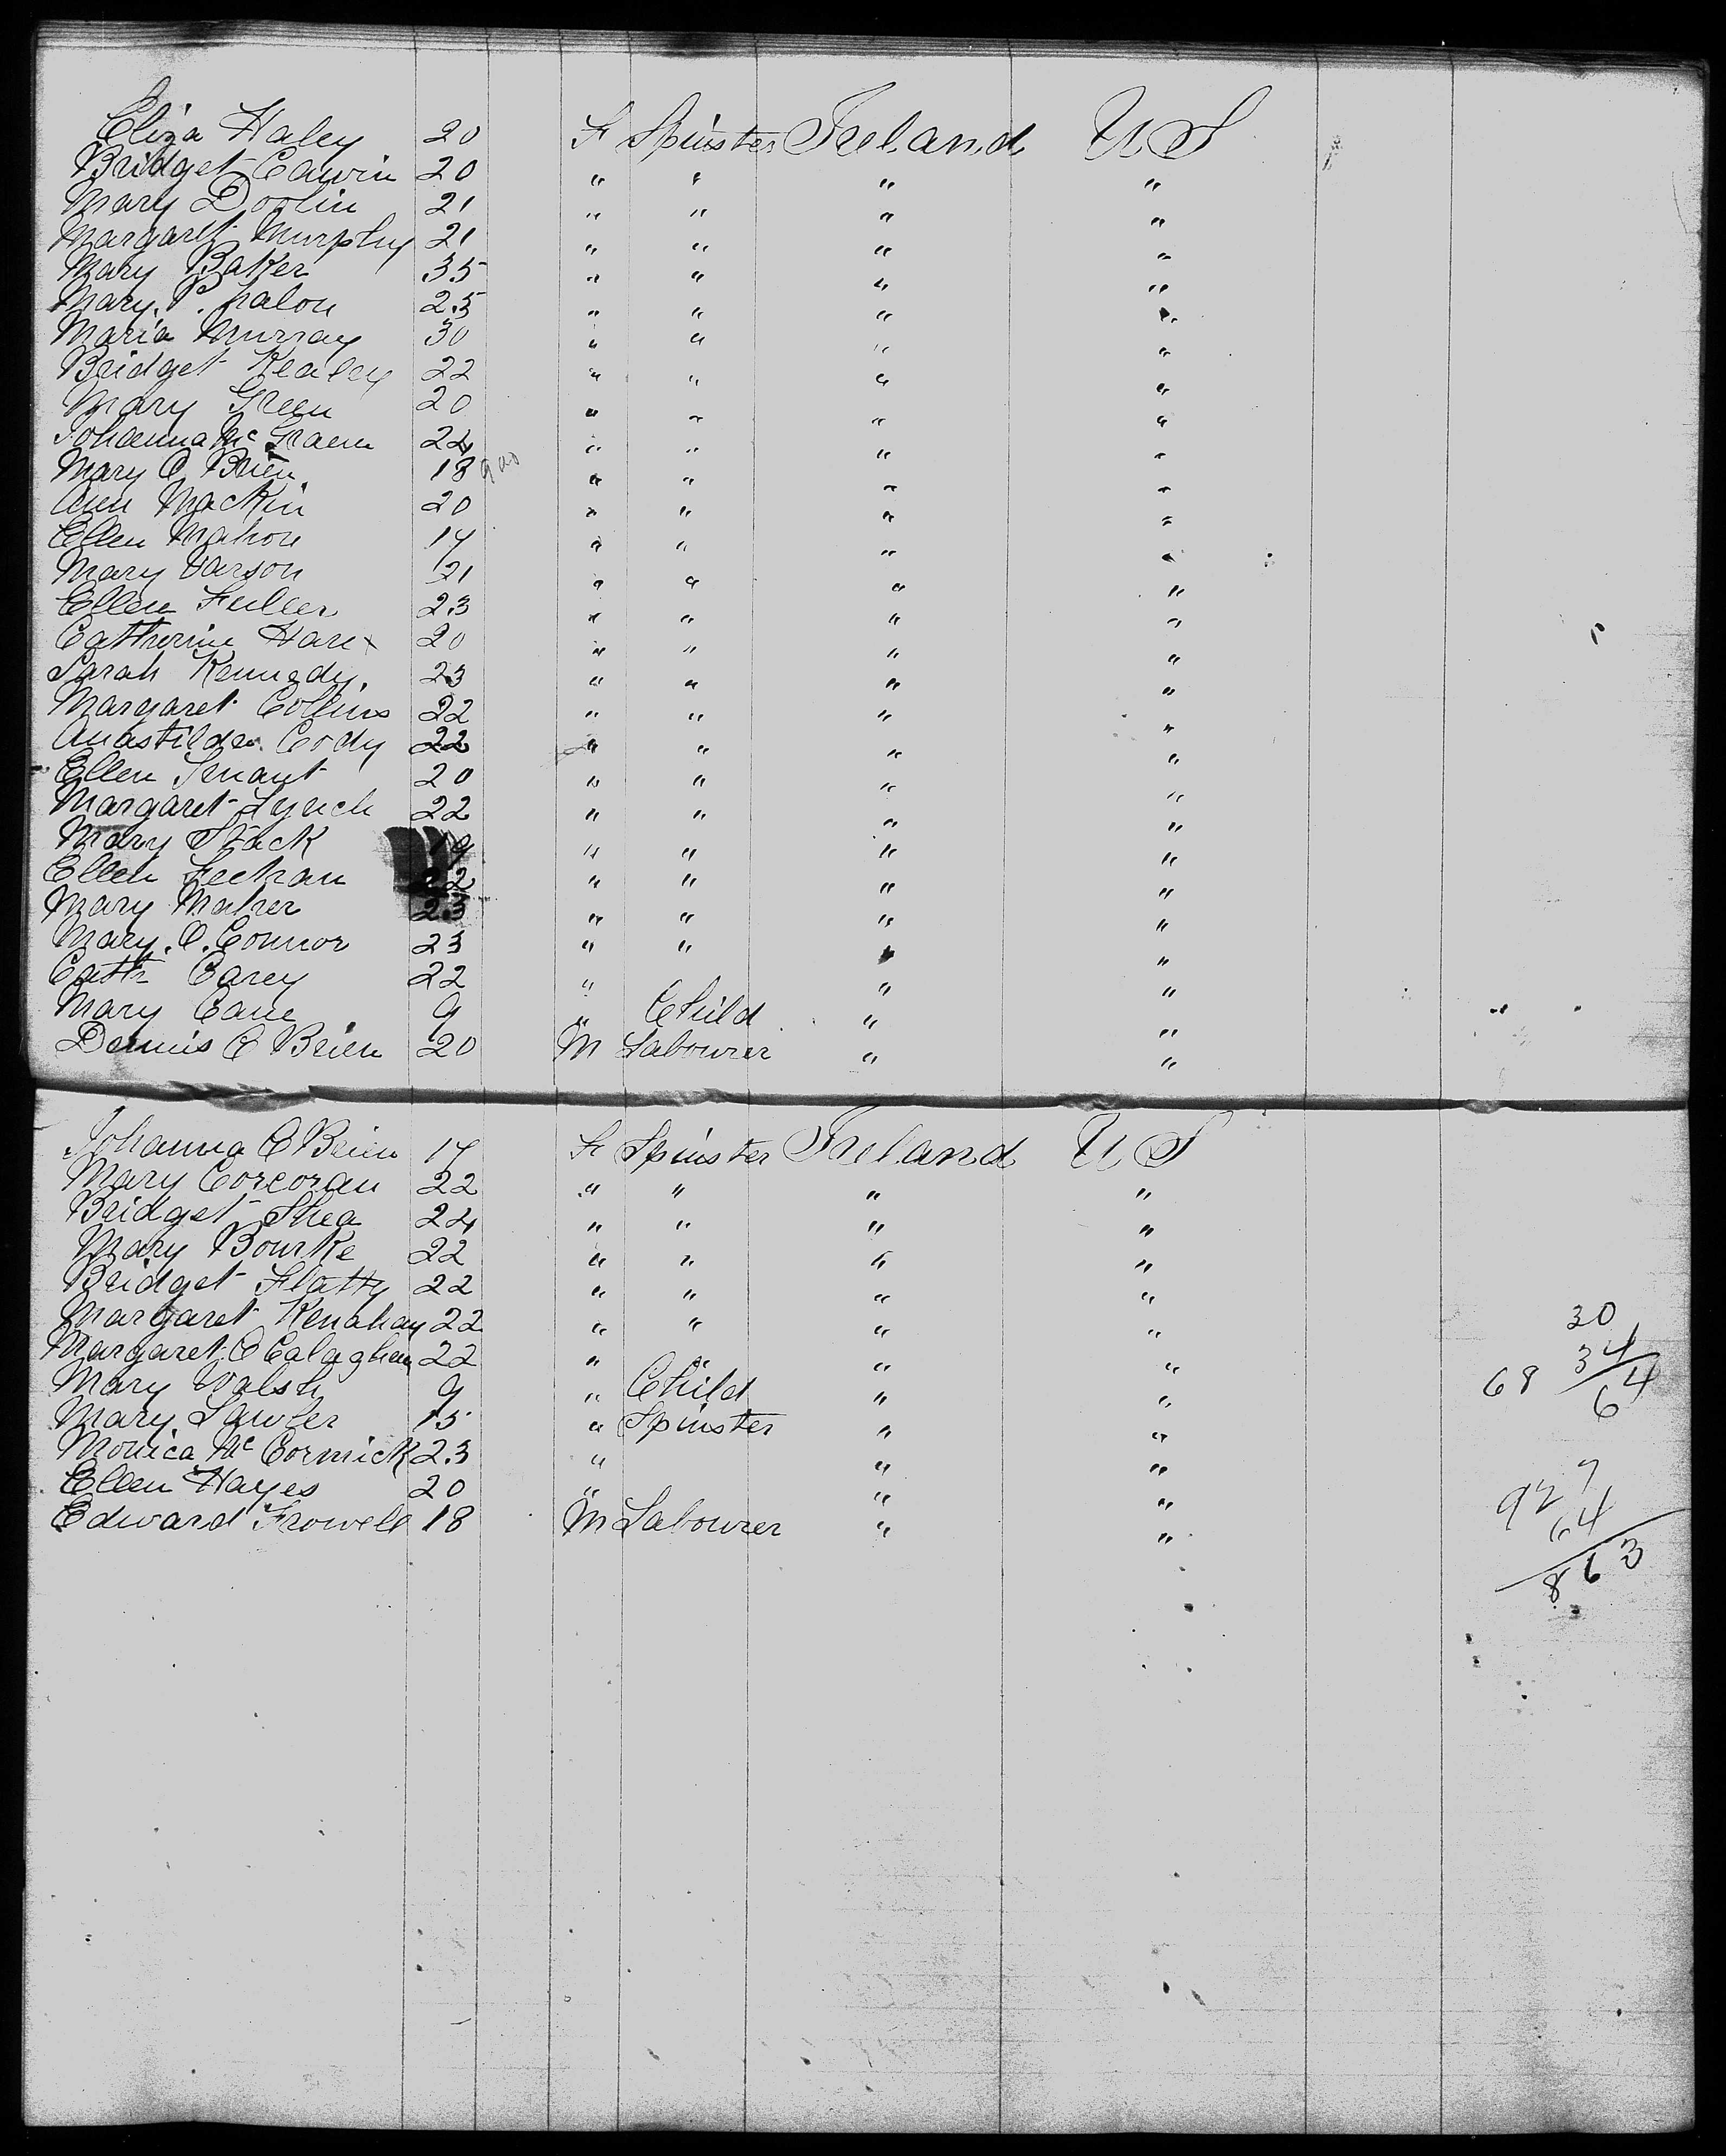 Eliza Haley 20 F Spinster Ireland U S
Bridget Cawin 20 " " " "
Mary Doolin 21 " " " "
Margaret Murphy 21 " " " "
Mary Baker 35 " " " "
Mary. P. 25 " " " "
Maria Murray 30 " " " "
Bridget Kealey 22 " " " "
Mary Green 20 " " " "
Johanna Mc 24 " " " "
Mary O Brien 18 " " " "
Ann Mackin 20 " " " "
Ellen Mahon 17 " " " "
Mary 21 " " " "
Ellen Fuller 23 " " " "
Catherine 20 " " " "
Sarah Kennedy. 23 " " " "
Margaret Collins 22 " " " "
Cody 22 " " " "
Ellen 20 " " " "
Margaret Lynch 22 " " " "
Mary Stack 19 " " " "
Ellen 22 " " " "
Mary Maher 23 " " " "
Mary. O. Connor 23 " " " "
Cath Carey 22 " " "
Mary Cane 9 " Child " "
Dennis O Brien 20 M Labourer " "
Johanna O Brien 17 F Spinster Ireland U S
Mary Corcoran 22 " " " "
Bridget Shea 24 " " " "
Mary Bourke 22 " " " "
Bridget Flatty 22 " " " "
Margaret Kenahan 22 " " " "
Margaret O Calaghan 22 " " " "
Mary Walsh 9 " Child " "
Mary Lawler 15 " Spinster " "
Monica Mc Cormick 23 " " "
Ellen Hayes 20 " " "
Edward Frowell 18 M Labourer " "
30
34
68 64
927
64
863